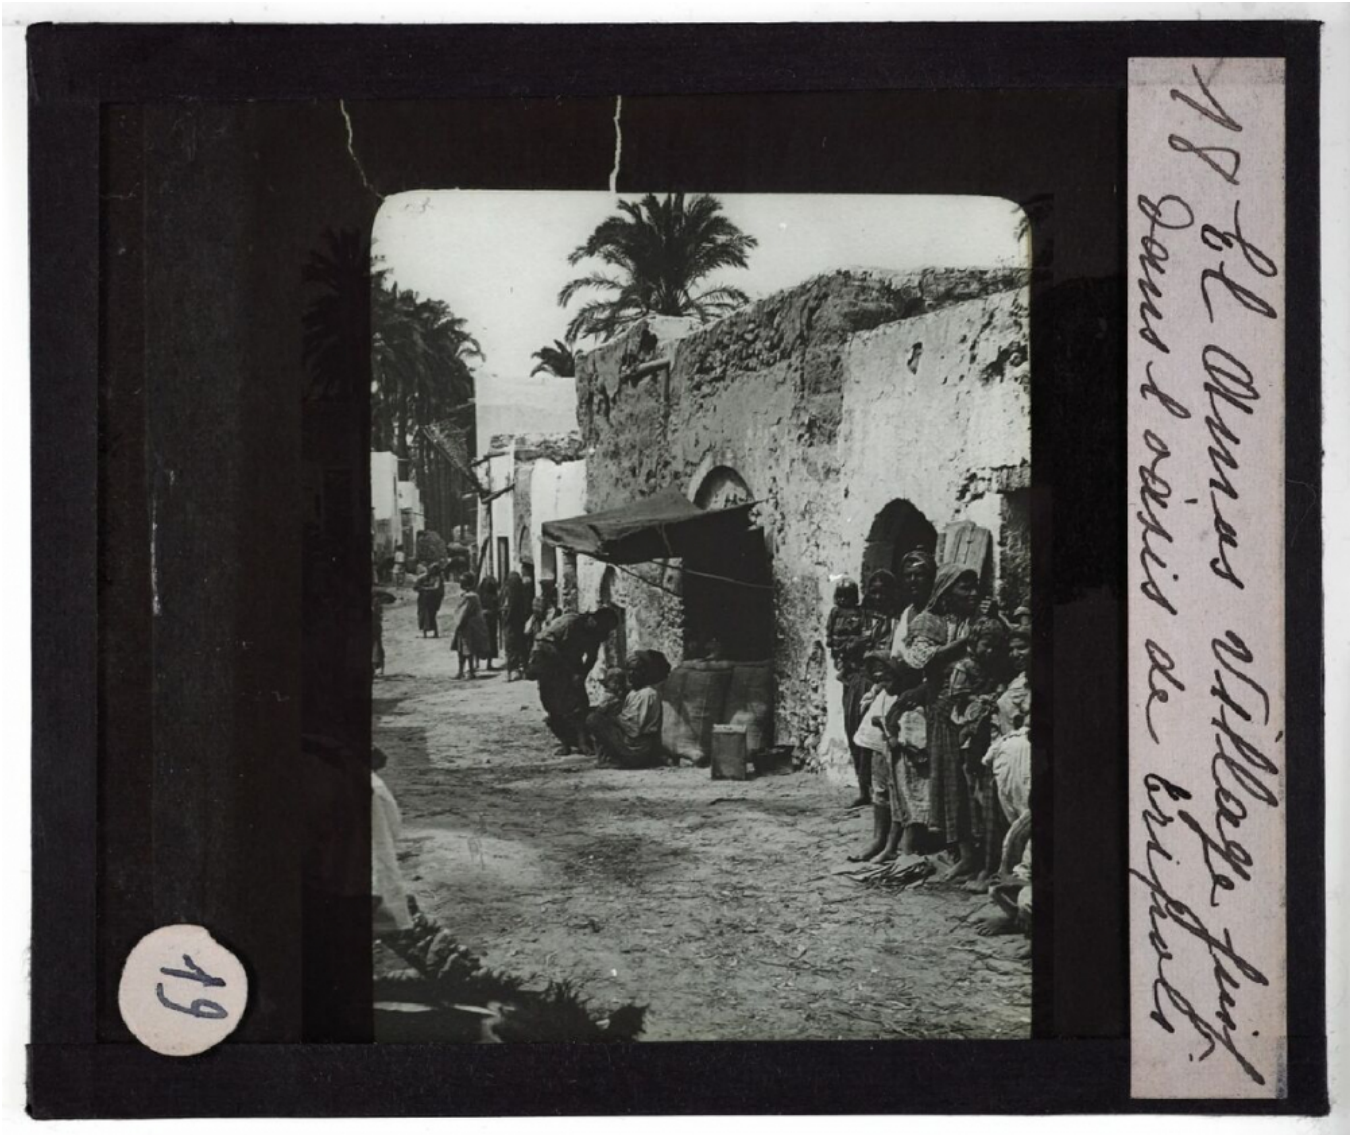 18 El Amnos Village juif
dans l'oasis de Tripoli
19